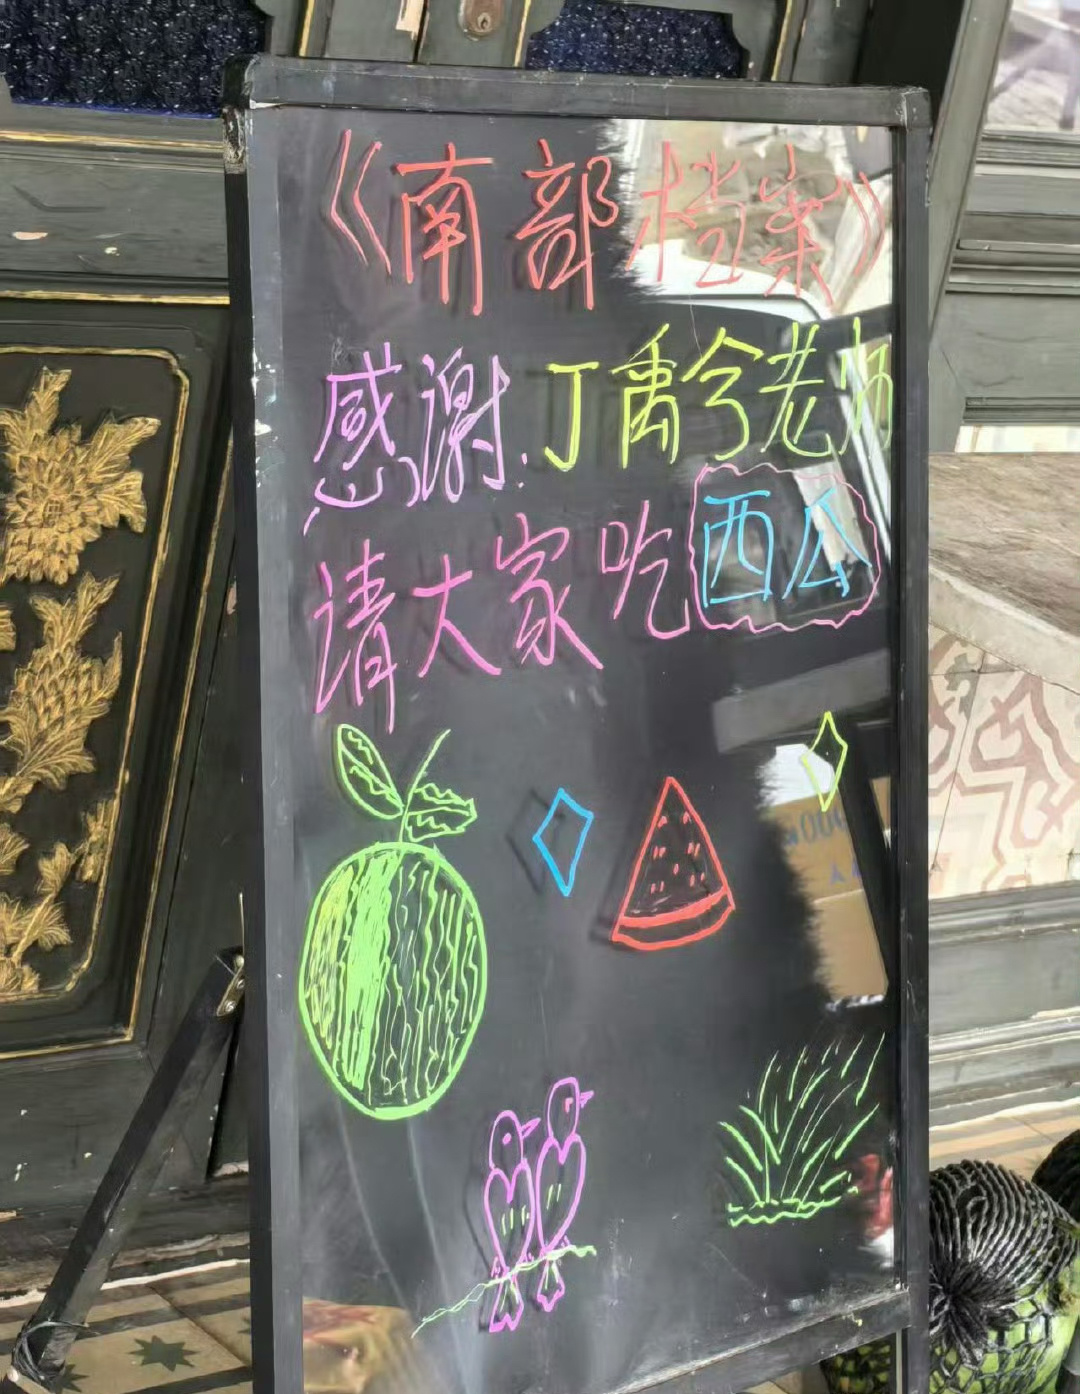 《南部档案》
感谢：丁禹兮老师
请大家吃西瓜